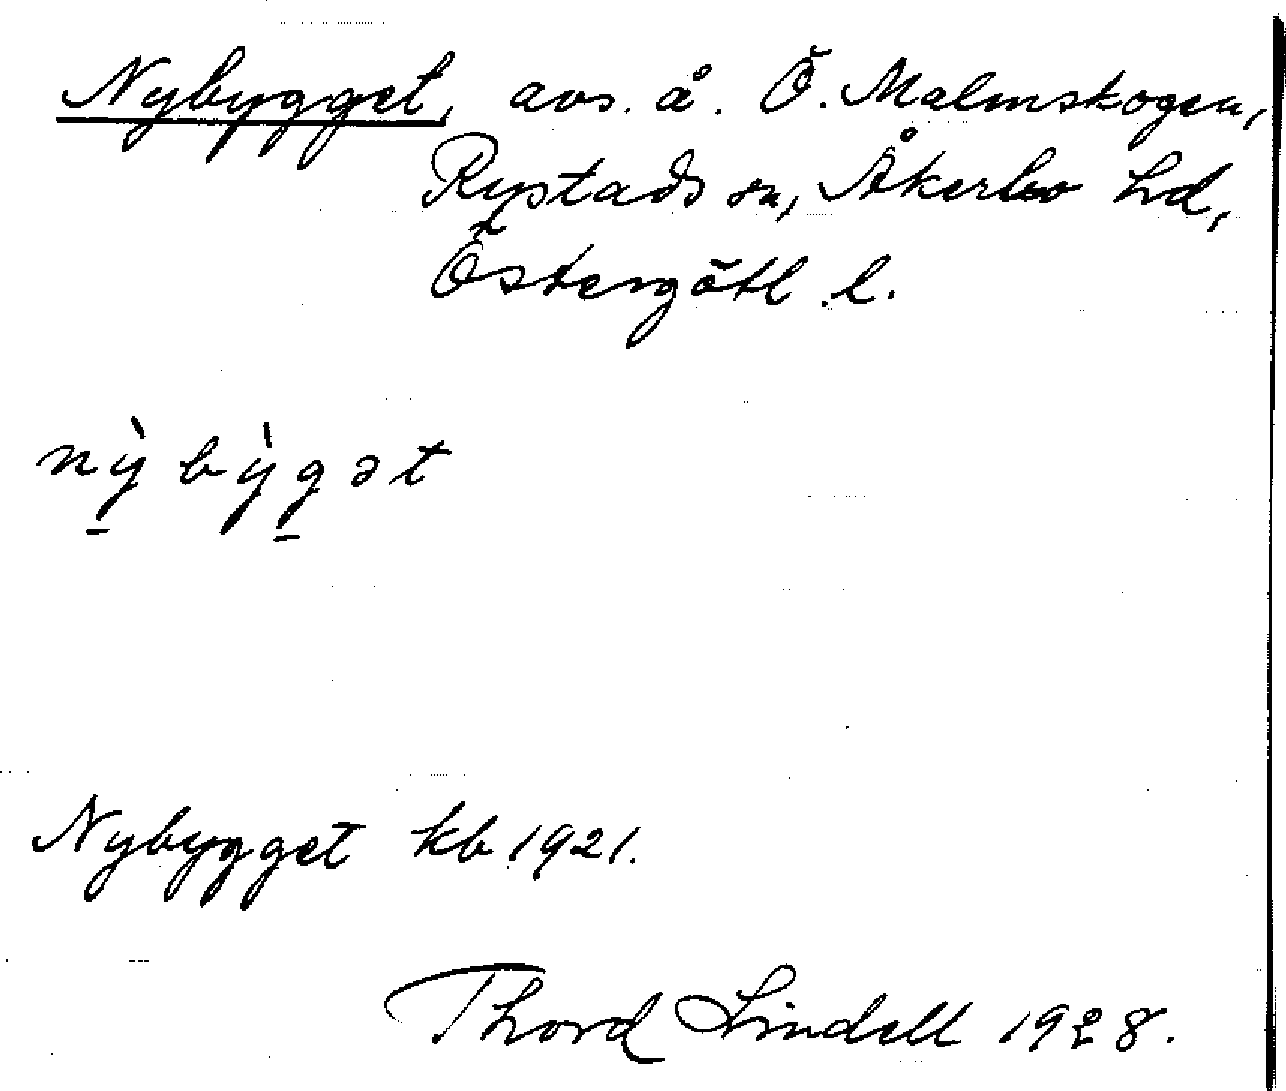 Nybygget, avs. å. Ö. Malmskogen,
Rystads sn, Åkerbo hd,
Östergötl. l.
nỳ̠bỳg̠ət
Nybygget kb 1921.
Thord Lindell 1928.